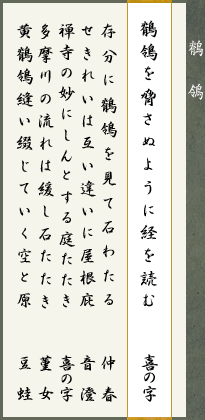 鶺鴒
鶺鴒を脅さぬように経を読む 喜の字
存分に鶺鴒を見て石わたる 仲春
せきれいは互い違いに屋根庇 音澄
禅寺の妙にしんとする庭たたき 喜の字
多摩川の流れは緩し石たたき 菫女
黄鶺鴒縫い綴じていく空と原 豆蛙